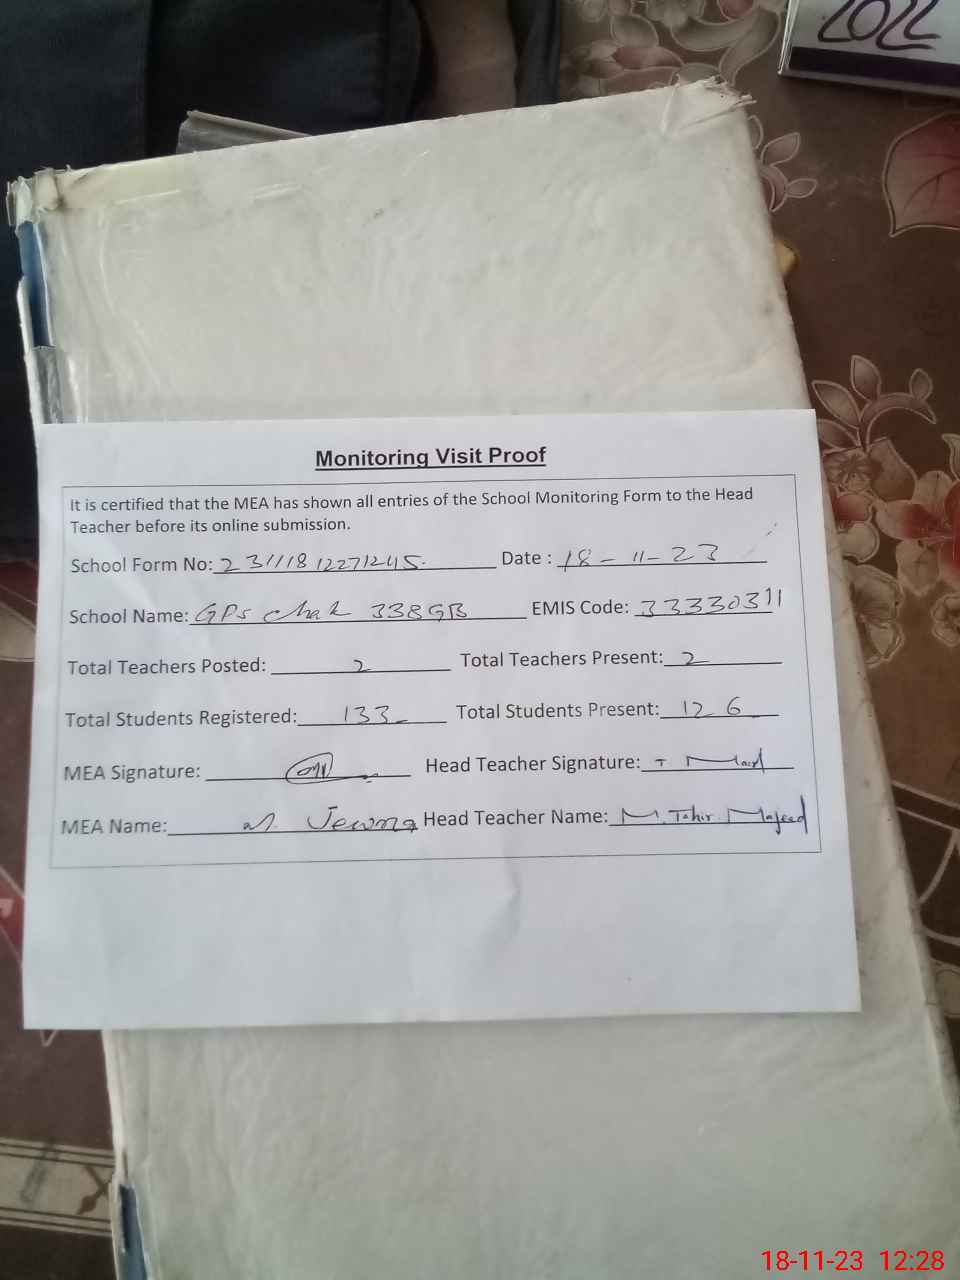 2022
Monitoring Visit Proof
It is certified that the MEA has shown all entries of the School Monitoring Form to the Head
Teacher before its online submission.
School Form No: 23111812271245. Date : 18-11-23
School Name: GPS chak 338GB EMIS Code: 33330311
Total Teachers Posted: 2 Total Teachers Present: 2
Total Students Registered: 133 Total Students Present: 126
MEA Signature: Head Teacher Signature:
MEA Name: M. Head Teacher Name: M. Tahir Majeed
18-11-23 12:28